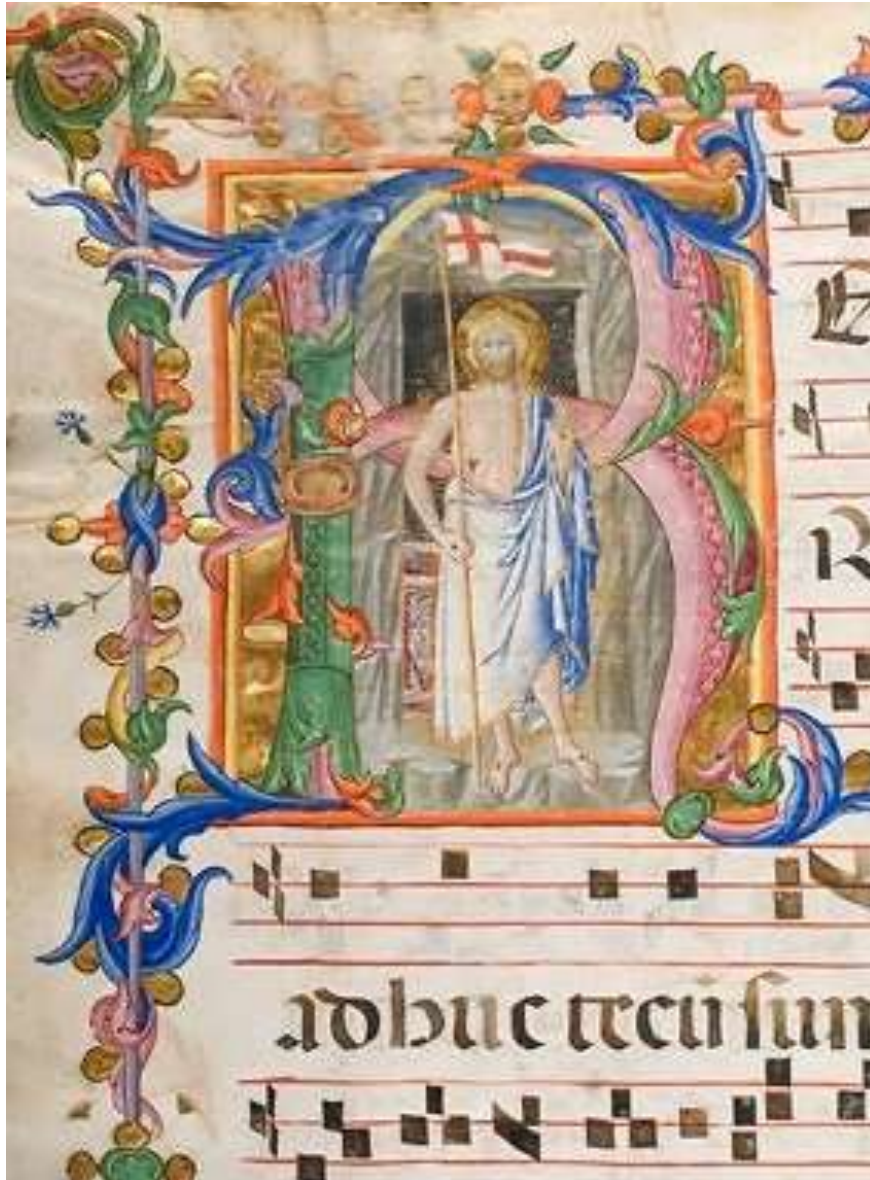 R
E
R
adhuc tecū sum